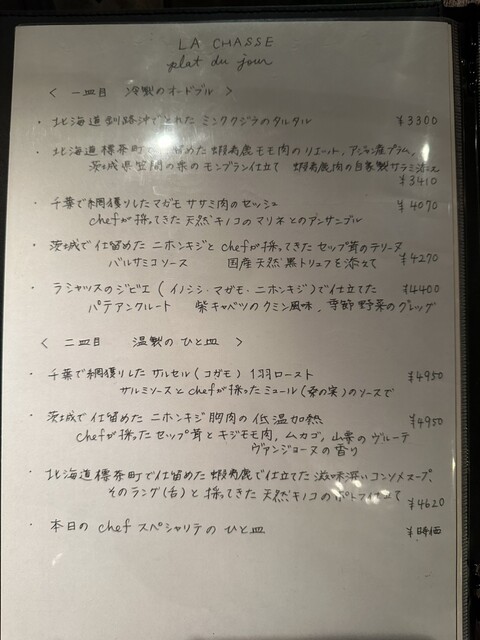 LA CHASSE
plat du jour
< 一皿目 冷製のオードブル >
・北海道釧路沖でとれた ミンククジラのタルタル ¥3300
・北海道標茶町で仕留めた 蝦夷鹿モモ肉のリエット, アジャン産プラム,
茨城県笠間の栗のモンブラン仕立て 蝦夷鹿肉の自家製サラミ添え
¥3410
・千葉で網獲りしたマガモ ササミ肉のセッシュ ¥4070
chefが採ってきた天然キノコのマリネとのアンサンブル
・茨城で仕留めた ニホンキジと chefが採ってきた セップ茸のテリーヌ
バルサミコソース 国産天然黒トリュフを添えて ¥4270
・ラシャッスのジビエ ( イノシシ・マガモ・ニホンキジ ) で仕立てた ¥4400
パテアンクルート 紫キャベツのクミン風味, 季節野菜のグレッグ
< 二皿目 温製のひと皿 >
・千葉で網獲りした サルセル ( コガモ ) 1羽ロースト ¥4950
サルミソースと chefが採ったミュール (桑の実) のソースで
・茨城で仕留めた ニホンキジ胸肉の低温加熱 ¥4950
chefが採ったセップ茸とキジモモ肉, ムカゴ, 山栗のヴルーテ
ヴァンジョーヌの香り
・北海道標茶町で仕留めた 蝦夷鹿で仕立てた 滋味深いコンソメスープ,
そのラング(舌)と採ってきた天然キノコのポトフ仕立て
¥4620
・本日の chef スペシャリテの ひと皿 ¥時価